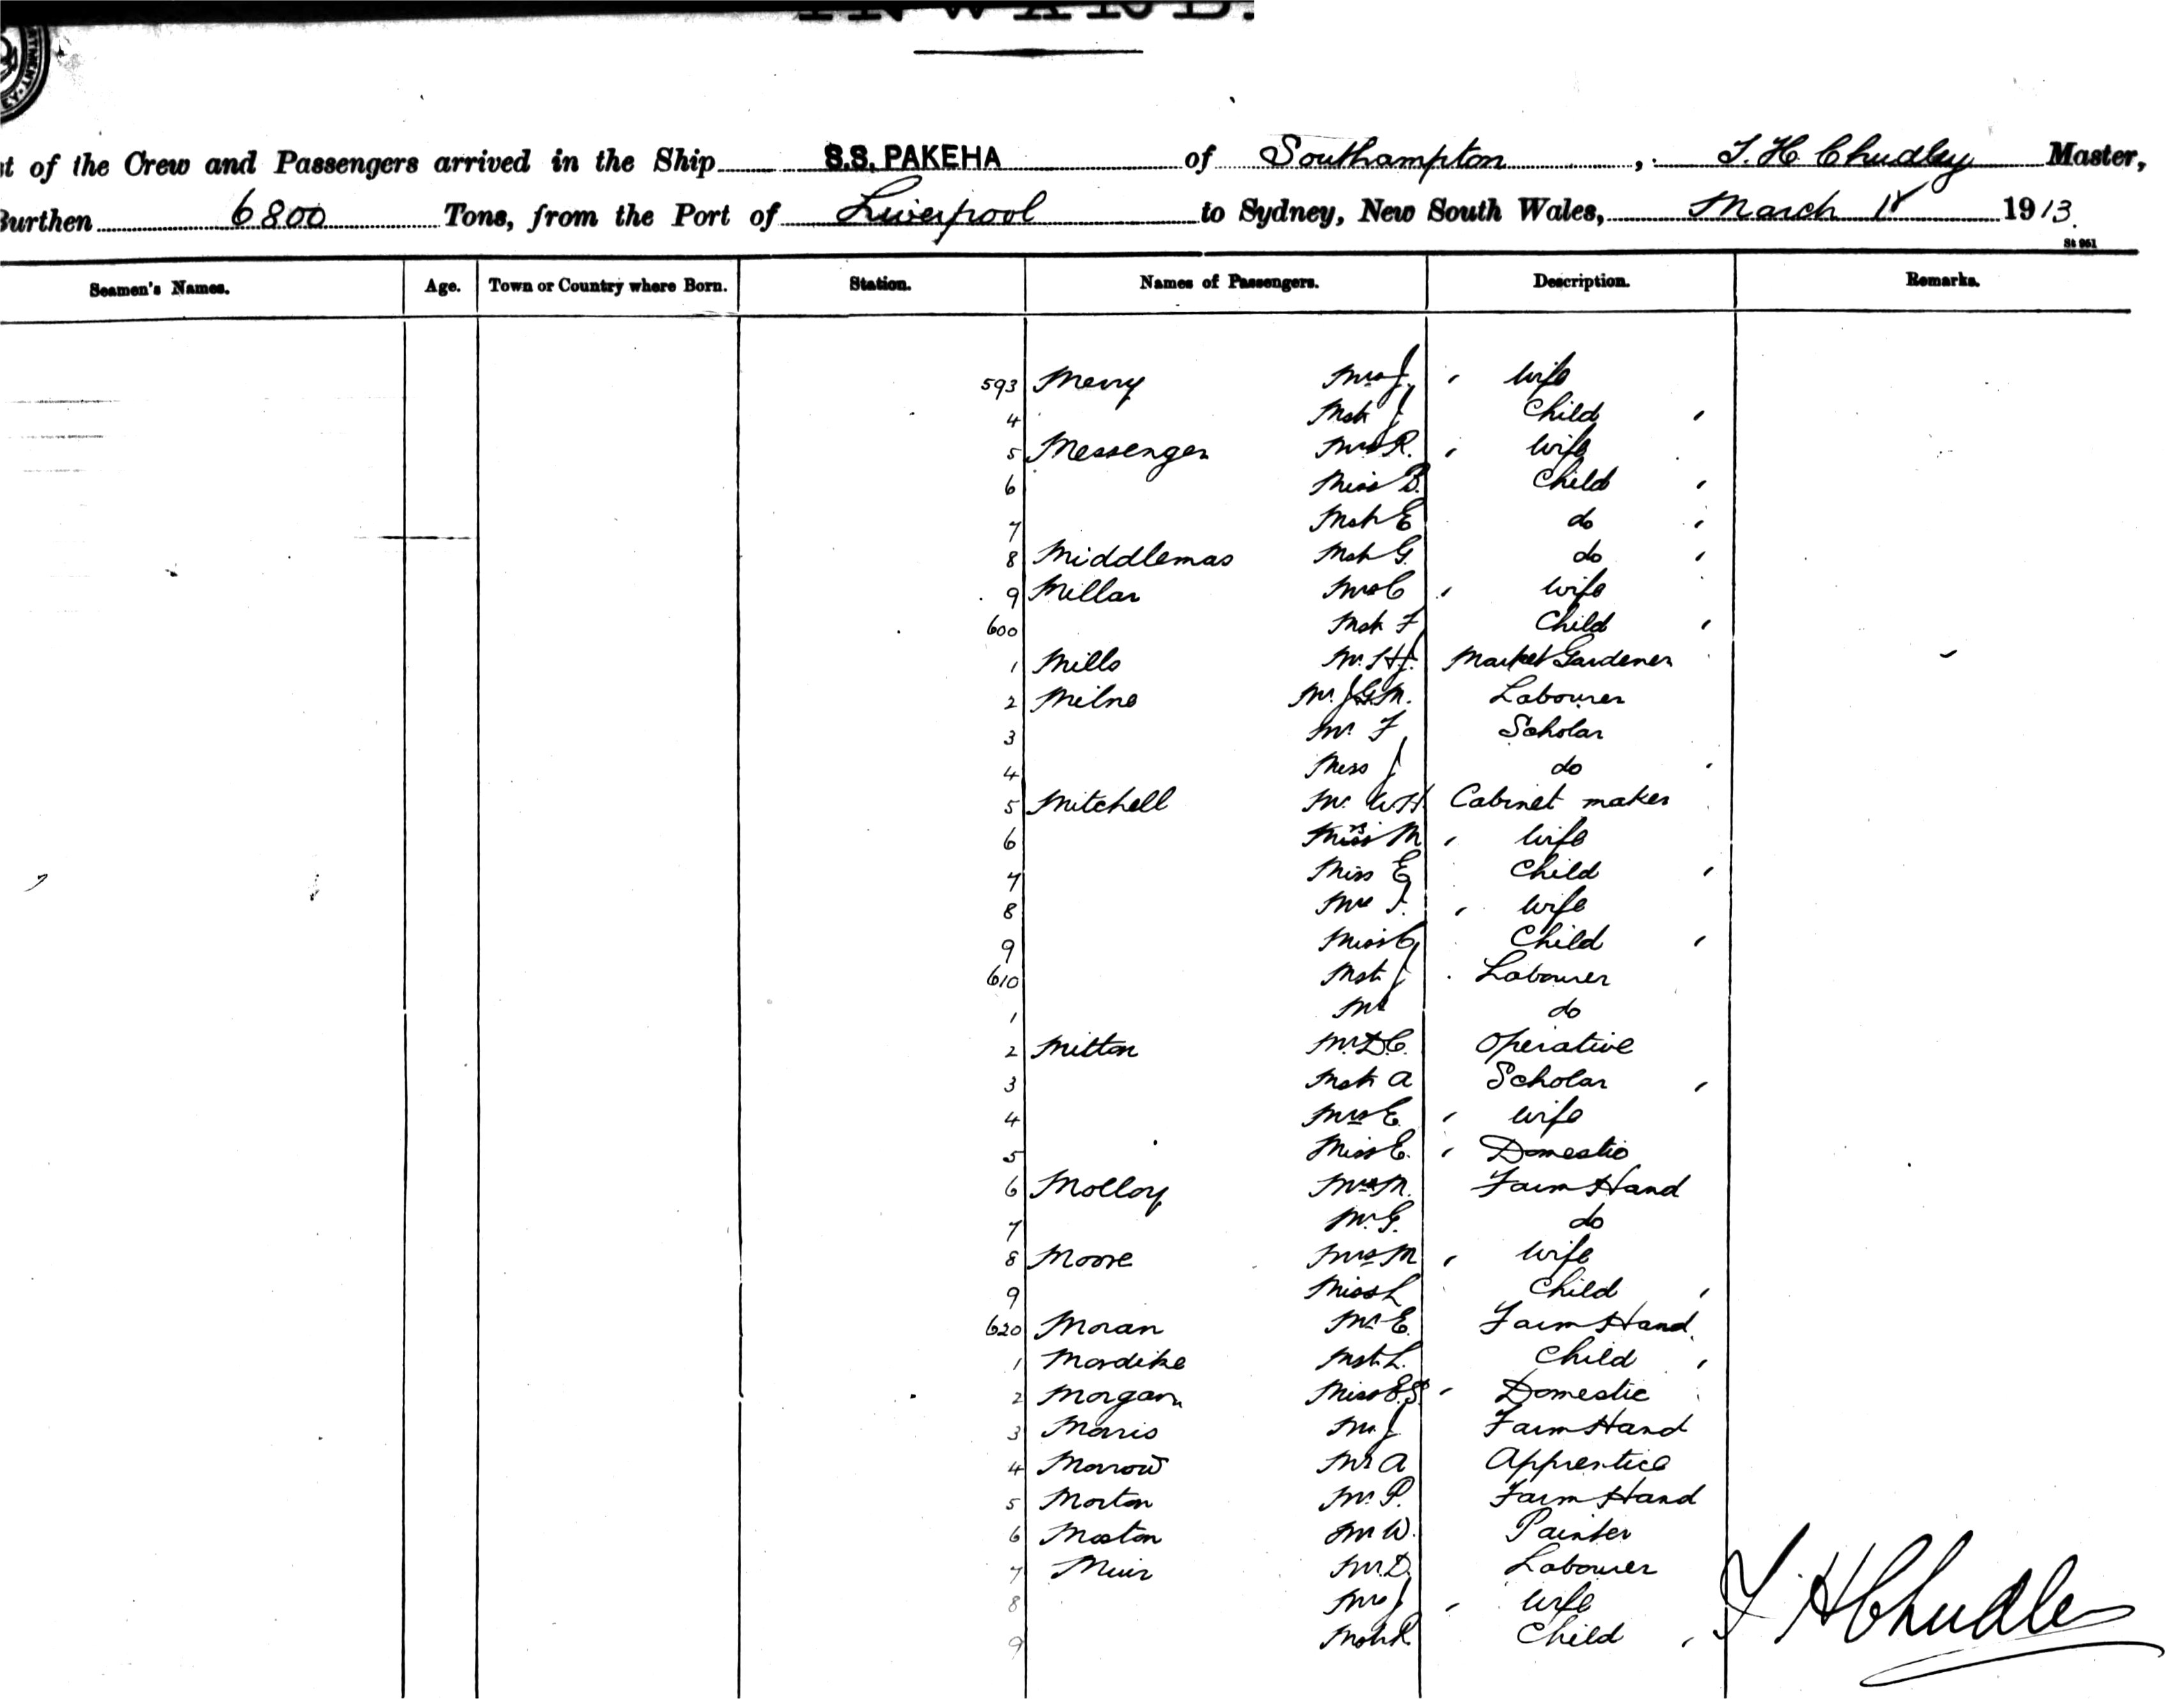 INWARD.
st of the Crew and Passengers arrived in the Ship S.S. PAKEHA of Southampton, T. H. Chudley Master,
Burthen 6800 Tons, from the Port of Liverpool to Sydney, New South Wales, March 18 1913.
St 961
Seamen's Names. Age. Town or Country where Born. Station. Names of Passengers. Description. Remarks.
593 Merry Mrs J. " wife
4 Mstr J Child "
5 Messenger Mrs R. " wife
6 Miss B. Child "
7 Mstr E do "
8 Middlemas Mstr G. do "
9 Millar Mrs C " wife
600 Mstr F Child "
1 Mills Mr. H.J. Market Gardener
2 Milne Mr. J.G.M. Labourer
3 Mr. F Scholar
4 Miss J do
5 Mitchell Mr. W.H. Cabinet maker
6 Mrs M " wife
7 Miss E Child "
8 Mrs J. " wife
9 Miss C Child "
610 Mstr J Labourer
1 Mr do
2 Mitton Mr. D.C. Operative
3 Mstr A Scholar "
4 Mrs E. " wife
5 Miss E. " Domestic
6 Molloy Mr M. Farm Hand
7 Mr. G. do
8 Moore Mrs M " wife
9 Miss L Child "
620 Moran Mr E. Farm Hand
1 Mordike Mstr. L. Child "
2 Morgan Miss E.S. " Domestic
3 Morris Mr J. Farm Hand
4 Morrow Mr A Apprentice
5 Morton Mr. P. Farm Hand
6 Moston Mr W. Painter
7 Muir Mr. D. Labourer
8 Mrs J " wife
9 Mstr R Child "
T. H Chudley